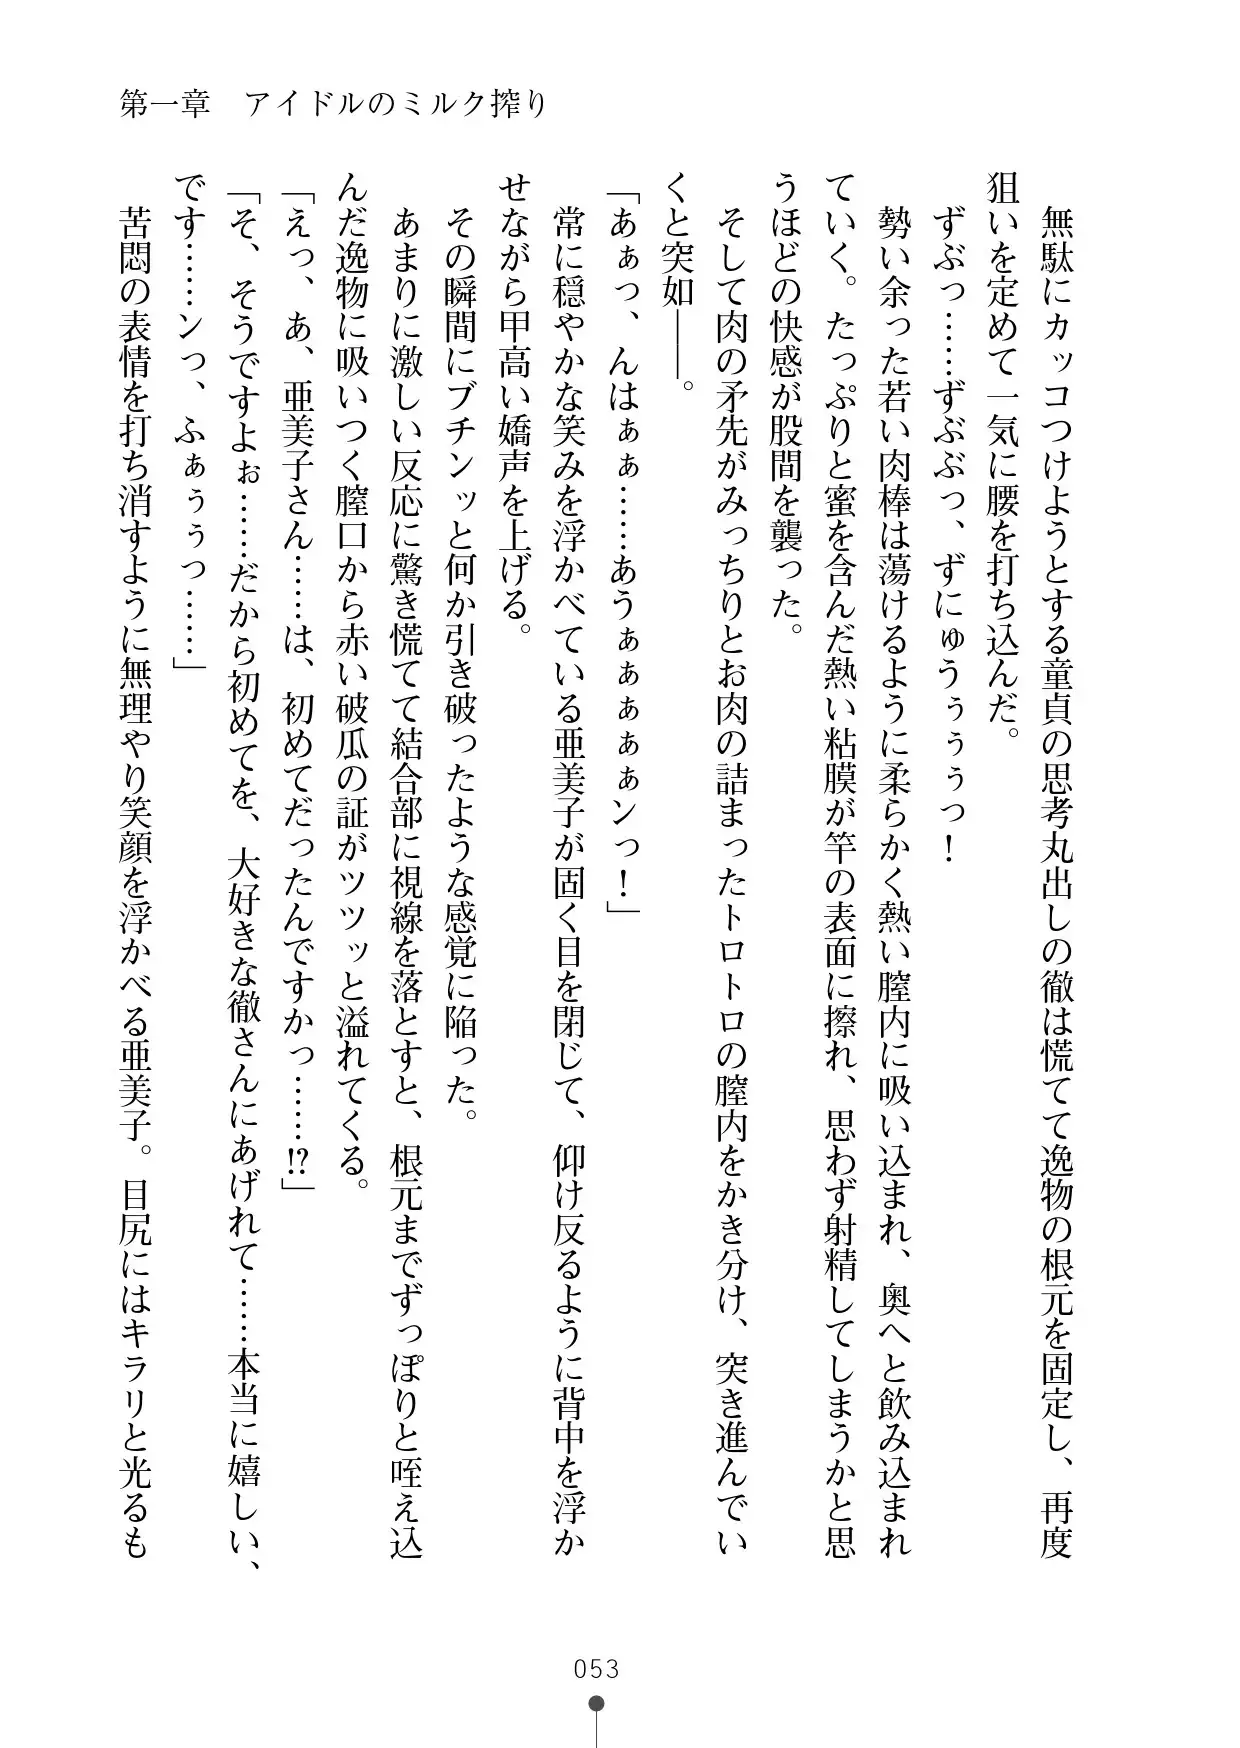 第一章　アイドルのミルク搾り
　無駄にカッコつけようとする童貞の思考丸出しの徹は慌てて逸物の根元を固定し、再度
狙いを定めて一気に腰を打ち込んだ。
　ずぶっ……ずぶぶっ、ずにゅうぅぅぅっ！
　勢い余った若い肉棒は蕩けるように柔らかく熱い膣内に吸い込まれ、奥へと飲み込まれ
ていく。たっぷりと蜜を含んだ熱い粘膜が竿の表面に擦れ、思わず射精してしまうかと思
うほどの快感が股間を襲った。
　そして肉の矛先がみっちりとお肉の詰まったトロトロの膣内をかき分け、突き進んでい
くと突如――。
「あぁっ、んはぁぁ……あうぁぁぁぁぁンっ！」
　常に穏やかな笑みを浮かべている亜美子が固く目を閉じて、仰け反るように背中を浮か
せながら甲高い嬌声を上げる。
　その瞬間にブチンッと何か引き破ったような感覚に陥った。
　あまりに激しい反応に驚き慌てて結合部に視線を落とすと、根元までずっぽりと咥え込
んだ逸物に吸いつく膣口から赤い破瓜の証がツツッと溢れてくる。
「えっ、あ、亜美子さん……は、初めてだったんですかっ……!?」
「そ、そうですよぉ……だから初めてを、大好きな徹さんにあげれて……本当に嬉しい、
です……ンっ、ふぁぅぅっ……」
　苦悶の表情を打ち消すように無理やり笑顔を浮かべる亜美子。目尻にはキラリと光るも
053